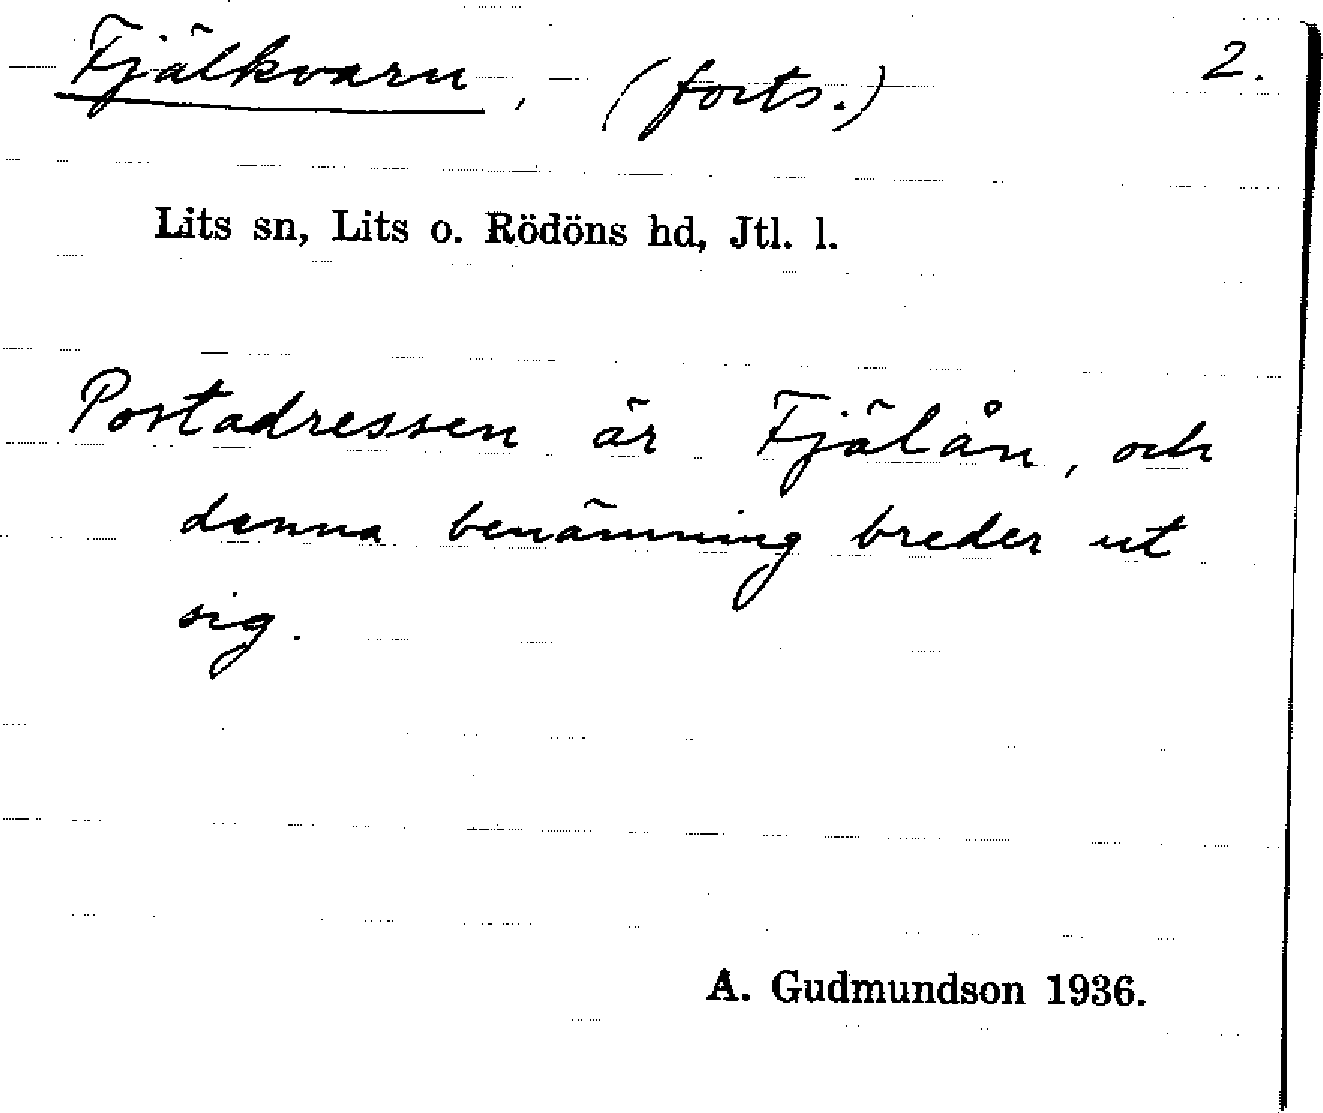 Fjälkvarn, - (forts.) 2.
Lits sn, Lits o. Rödöns hd, Jtl. l.
Postadressen är Fjälån, och
denna benämning breder ut
sig.
A. Gudmundson 1936.